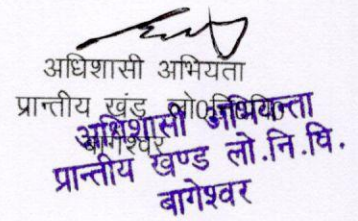 अधिशासी अभियता
प्रान्तीय खंड लो0नि0वि0
बागेश्वर
अधिशासी अभियन्ता
प्रान्तीय खण्ड लो.नि.वि.
बागेश्वर